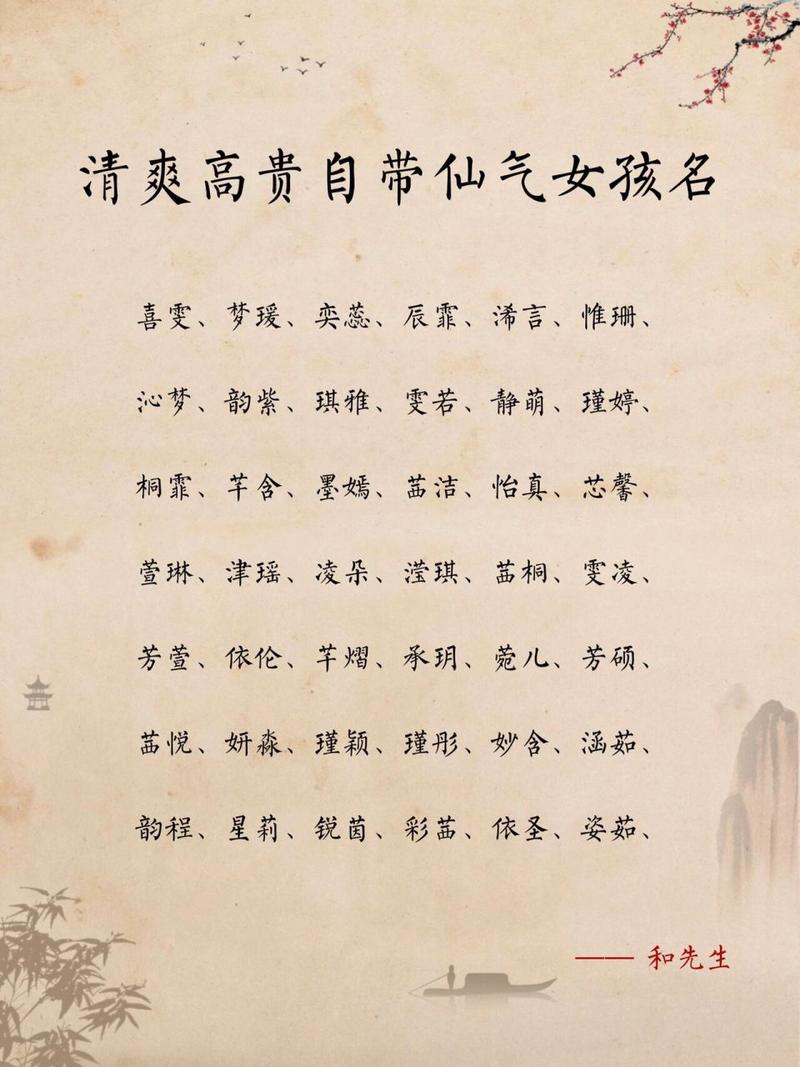 清爽高贵自带仙气女孩名
喜雯、梦瑗、奕蕊、辰霏、浠言、惟珊、
沁梦、韵紫、琪雅、雯若、静萌、瑾婷、
桐霏、芊含、墨嫣、茜洁、怡真、芯馨、
萱琳、津瑶、凌朵、滢琪、茜桐、雯凌、
芳萱、依伦、芊熠、承玥、菀儿、芳硕、
茜悦、妍淼、瑾颖、瑾彤、妙含、涵茹、
韵程、星莉、锐茵、彩茜、依圣、姿茹、
—— 和先生